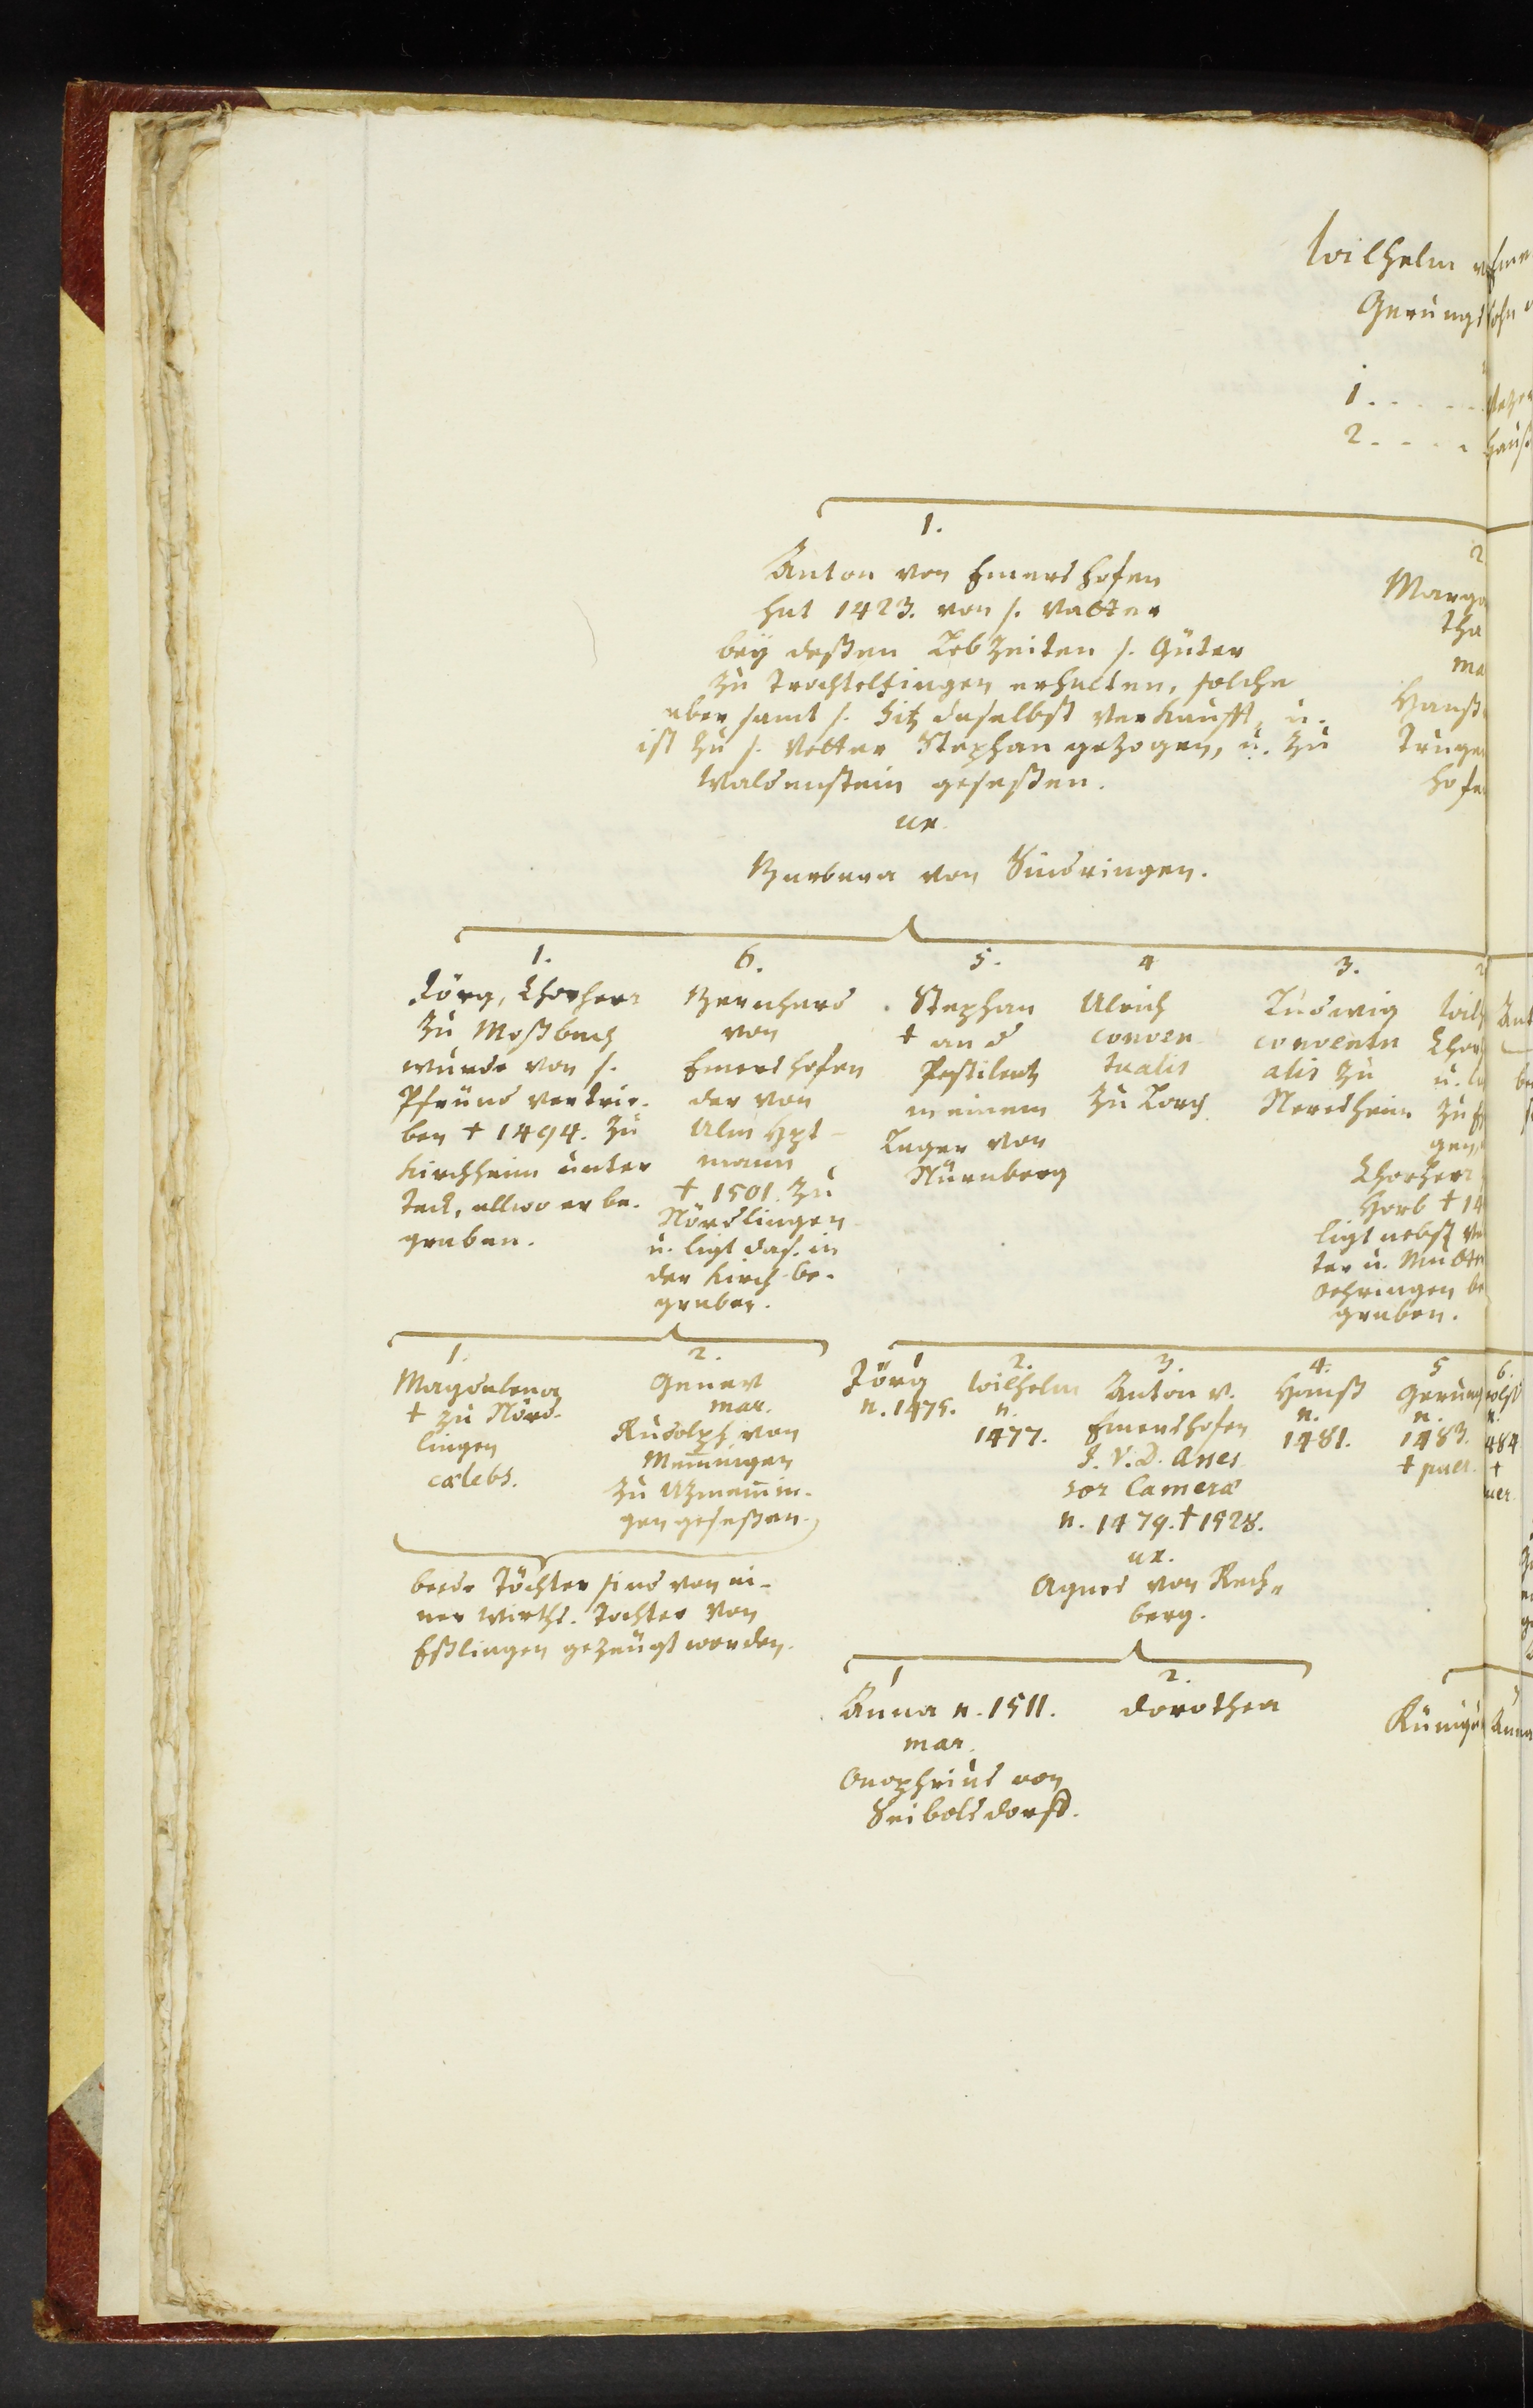 Wilhelm v Emer
Gerungs Sohn
1 . . . . .
2 . . . . Hauß
1.
Anton von Emershofen
hat 1423. von s. Vatter
beÿ deßen Lebzeiten s. Güter
zu Trochtelfingen erhalten, solche
aber samt s. Sitz daselbst verkaufft, u.
ist zu s. Vetter Stephan gezogen, u. zu
Waldenstein geseßen.
ux.
Barbara von Sindringen.
2
Marga
tha
ma
Hanß
Truge
hofe
1.
Jörg, Chorherr
zu Moßbach
wurde von s.
Pfründ vertrie-
ben † 1494. zu
Kirchheim unter
Teck, allwo er be-
graben.
6.
Bernhard
von
Emershofen
der von
Ulm Hpt-
mann
† 1501. zu
Nördlingen
u. ligt das. in
der Kirch be-
graben.
5.
Stephan
† an d
Pestilentz
in einem
Lager von
Nürnberg
4
Ulrich
conven
tualis
zu Lorch
3.
Ludwig
conventu
alis zu
Neresheim
Wilh
Chorh
u.
zu
gen,
Chorherr
Horb † 14
ligt nebst Va
ter u. Mutter
Oehringen be
graben.
1.
Magdalena
† zu Nörd-
lingen
cælebs.
2.
Genev
mar.
Rudolph von
Memingen
zu Utzmemin-
gen geseßen.
beede Töchter sind von ei-
ner Wirths-Tochter von
Eßlingen gezeugt worden.
1
Jörg
n. 1475.
2.
Wilhelm
n.
1477.
3.
Anton v.
Emershofen
J. V. D. Asses
sor Cameræ
n. 1479. † 1528.
ux.
Agnes von Rech-
berg.
4.
Hanß
n.
1481.
5
Gerung
n.
1483.
† puer.
6.
olff
n.
484
†
uer.
1
Anna n. 1511.
mar.
Onophrius von
Seiboldsdorff.
2.
Dorothea
Künigu
Anna